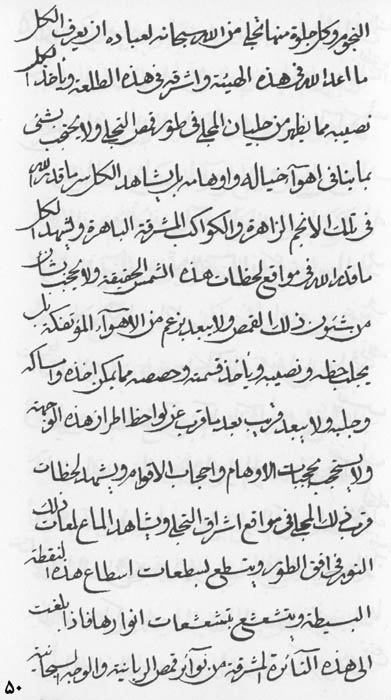 النجوم وكل جلوة منها تجلى من الله سبحانه لعباده ان يعرف الكل
ما اعد الله فى هذه الهيئة واشرقه فى هذه الطلعة ويأخذ الكل
نصيبه مما يظهر من جليان المجلى فى طور قمص التجلى ولا يحتجب بشئ
بما ينافى اهوآء خياله واوهامه بل يشاهد الكل سر ما قدر الله
فى تلك الانجم الزاهرة والكواكب المشرقة الباهرة وليشهد الكل
ما قدر الله فى مواقع لحظات هذه الشمس الحقيقة ولا يحتجب بشأن
من شئون ذلك القمص ولا يبعد بزعم من الاهوآء المؤتفكة بل
يجلب حظه ونصيبه ويأخذ قسمته وحصصه مما يمكن اخذه وامساكه
وجلبه ولا يبعد قريب بعد ما قرب عن لواحظ اطراز هذه الوجهة
ولا يستحجب بحجبات الاوهام واحجاب الاقوام ويشهد لحظات
قرب ذلك المجلى فى مواقع اشراق التجلى ويشاهد الماع لمعات ذلك
النور فى افق الظهور ويستطع بسطعات اسطاع هذه النقطة
البسيطة ويتشعشع بتشعشعات انوارها فاذا بلغت
الى هذه النآئرة المشرقة من نوآئر قمص الربانية والوجه السبحانية
٥٠